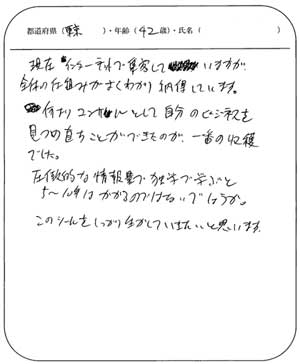 都道府県（東京）・年齢（42歳）・氏名（　　）
現在 インターネットで集客していますが、
全体の仕組みがよくわかり納得しています。
何よりコンサルとして自分のビジネスを
見つめ直すことができたのが、一番の収穫
でした。
圧倒的な情報量で独学で学ぶと
5〜10年はかかるのではないでしょうか。
このツールをしっかり生かしていきたいと思います。